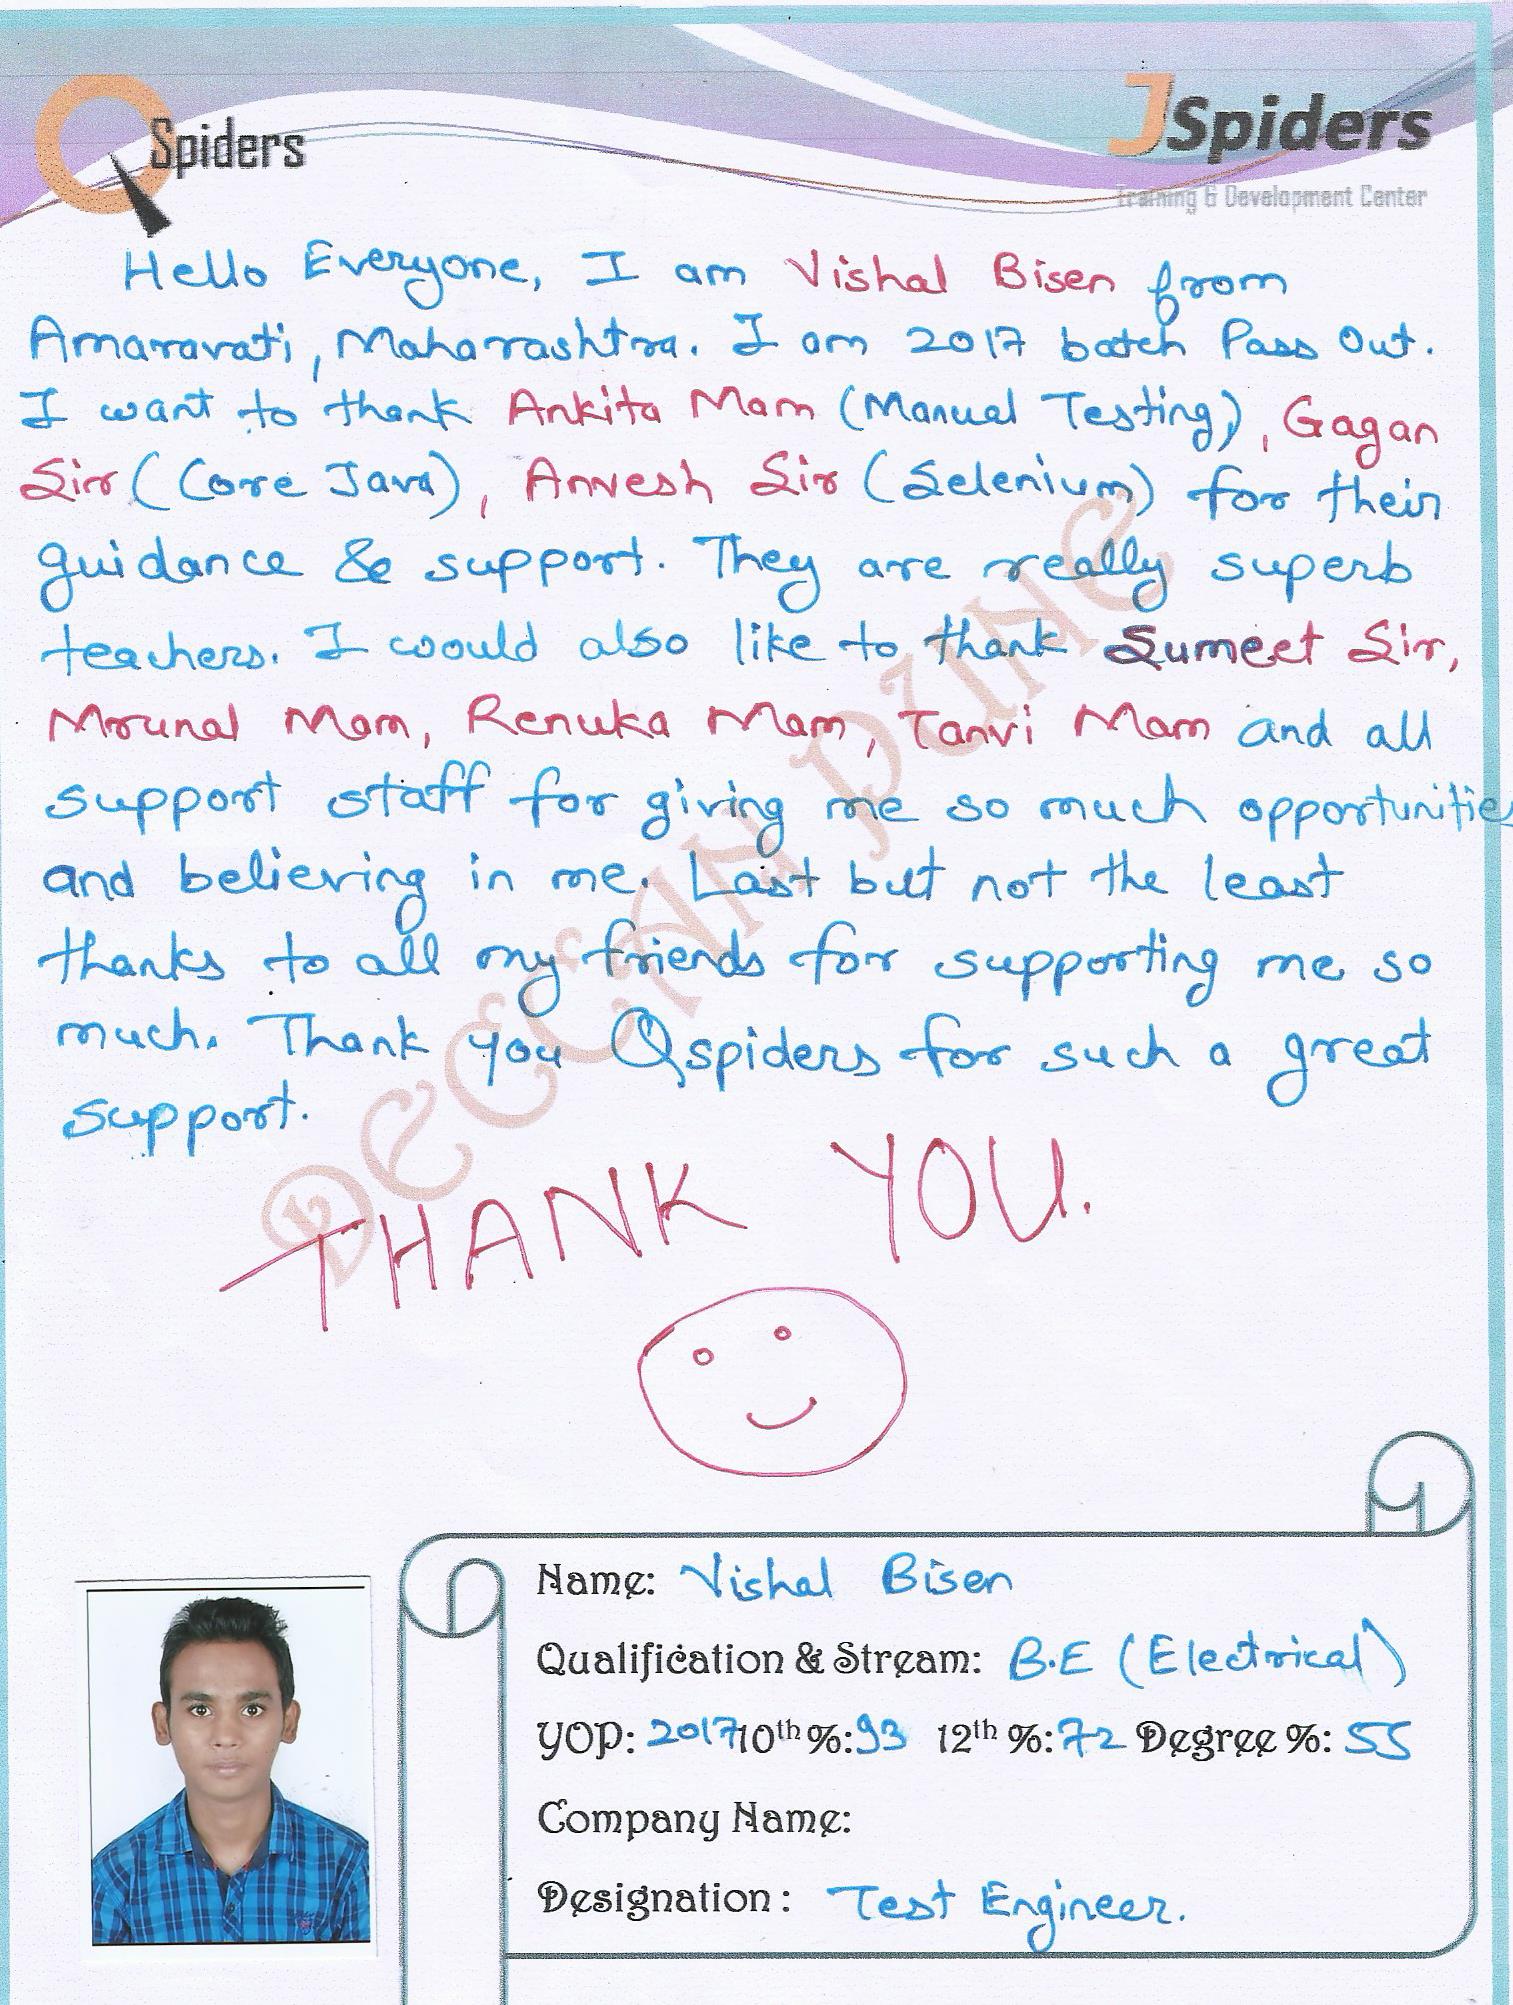 QSpiders
JSpiders
Training & Development Center
Hello Everyone, I am Vishal Bisen from
Amaravati, Maharashtra. I am 2017 batch Pass Out.
I want to thank Ankita Mam (Manual Testing), Gagan
Sir (Core Java), Anvesh Sir (Selenium) for their
guidance & support. They are really superb
teachers. I would also like to thank Sumeet Sir,
Mrunal Mam, Renuka Mam, Tanvi Mam and all
support staff for giving me so much opportunities
and believing in me. Last but not the least
thanks to all my friends for supporting me so
much. Thank you Qspiders for such a great
support.
DECCAN PUNE
THANK YOU.
Name: Vishal Bisen
Qualification & Stream: B.E (Electrical)
YOP: 2017 10th %: 93 12th %: 72 Degree %: 55
Company Name:
Designation : Test Engineer.